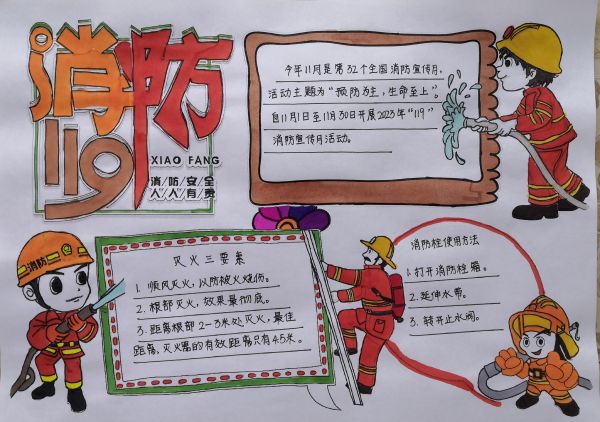 消防
119
XIAO FANG
消/防/安/全
人/人/有/责
今年11月是第32个全国消防宣传月。
活动主题为“预防为主，生命至上”。
自11月1日至11月30日开展2023年“119”
消防宣传月活动。
消防
灭火三要素
1. 顺风灭火，以防被火烧伤。
2. 根部灭火，效果最彻底。
3. 距离根部2-3米处灭火，最佳
距离，灭火器的有效距离只有4.5米。
消防栓使用方法
1. 打开消防栓箱。
2. 延伸水带。
3. 转开止水阀。